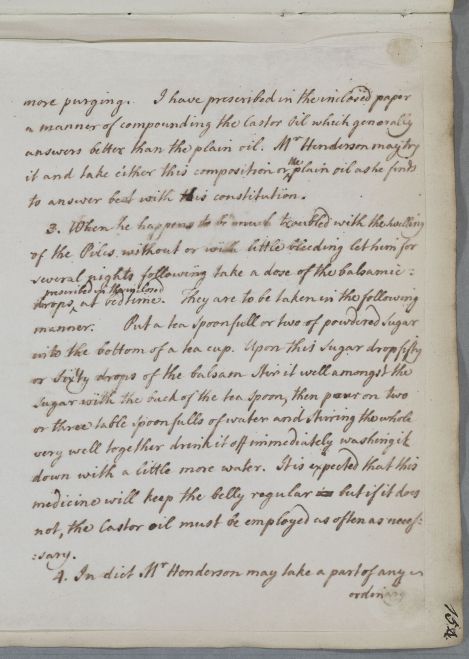 more purging. I have prescribed in the inclosed paper
a manner of compounding the Castor Oil which generally
answers better than the plain oil. Mr Henderson may try
it and take either this composition or the plain oil as he finds
to answer best with this constitution.
3. When he happens to be much troubled with the swelling
of the Piles without or with little bleeding let him for
several nights following take a dose of the balsamic
prescribed in the inclosed
drops at bedtime. They are to be taken in the following
manner. Put a tea spoonfull or two of powdered sugar
into the bottom of a tea cup. Upon this sugar drop fifty
or sixty drops of the balsam stir it well amongst the
sugar with the back of the tea spoon, then pour on two
or three table spoonfulls of water and stirring the whole
very well together drink it off immediately washing it
down with a little more water. It is expected that this
medicine will keep the belly regular but if it does
not, the Castor oil must be employed as often as neces:
:sary.
4. In diet Mr Henderson may take a part of any
ordinary
154